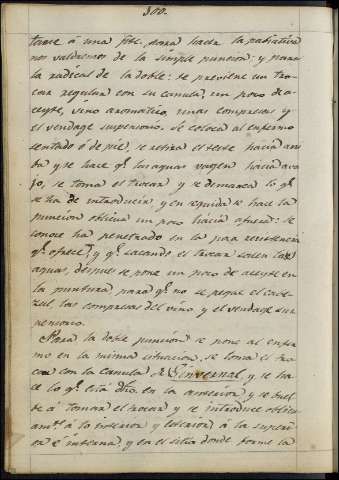 300.
tarse á una fibr. para hacer la paliativa
nos valdremos de la simple puncion: y para
la radical de la doble: se previene un tro-
car regular con su canula, un poco de a-
ceyte, vino aromatico, unas compresas y
el vendage suspensorio. Se coloca al enfermo
sentado ó de pie, se retira el teste hacia arri
ba y se hace q.e las aguas vayan hacia ava
jo, se toma el trocar y se dimarca lo q.e
se ha de introducir y en seguida se hace la
puncion oblicua un poco hacia afuera: se
conoce ha penetrado en la poca resistencia
q.e ofrece, y q.e sacando el trocar salen las
aguas, despues se pone un poco de aceyte en
la puntura para q.e no se pegue el cabe-
zal, las compresas del vino y el vendage sus
pensorio.
Para la doble puncion se pone al enfer
mo en la misma situacion, se toma el tro
car con la canula de y se ha
ce lo q.e está dho. en la anterior y se buel
be á tomar el trocar y se introduce oblicu
am.te á la posterior y esterior á la superi
or é interna, y en el sitio donde forme la